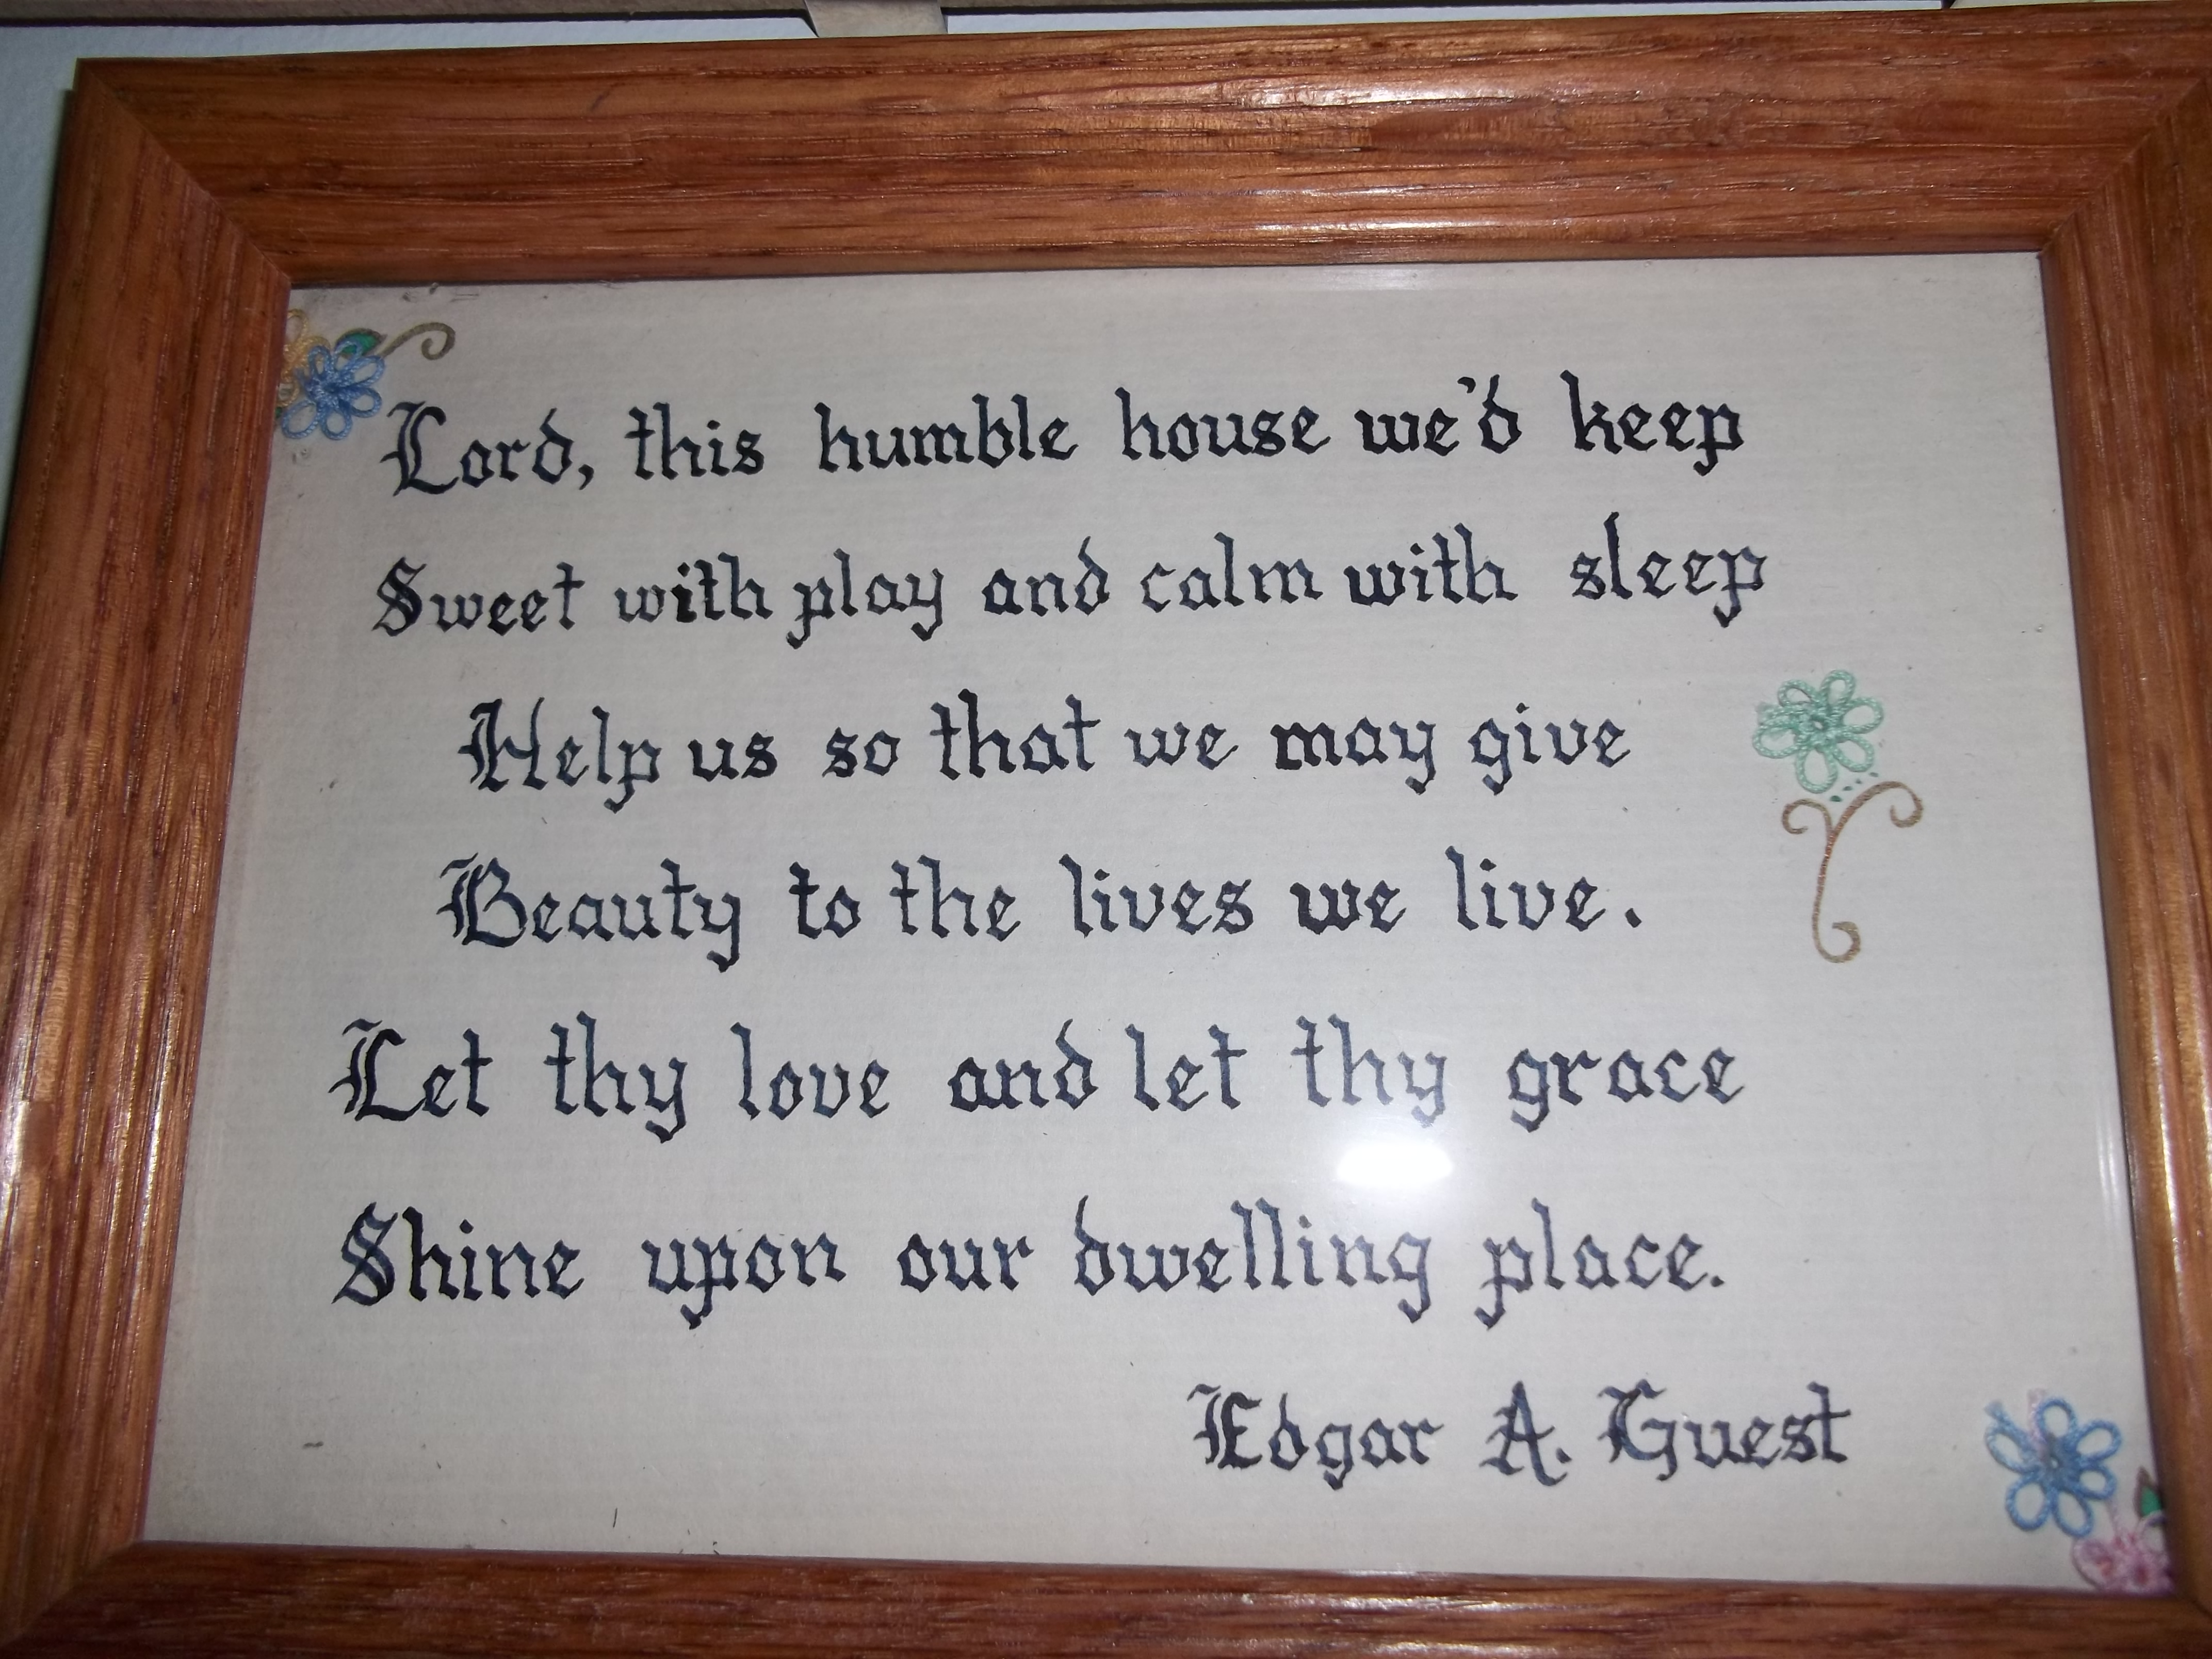 Lord, this humble house we'd keep
Sweet with play and calm with sleep
Help us so that we may give
Beauty to the lives we live.
Let thy love and let thy grace
Shine upon our dwelling place.
Edgar A. Guest